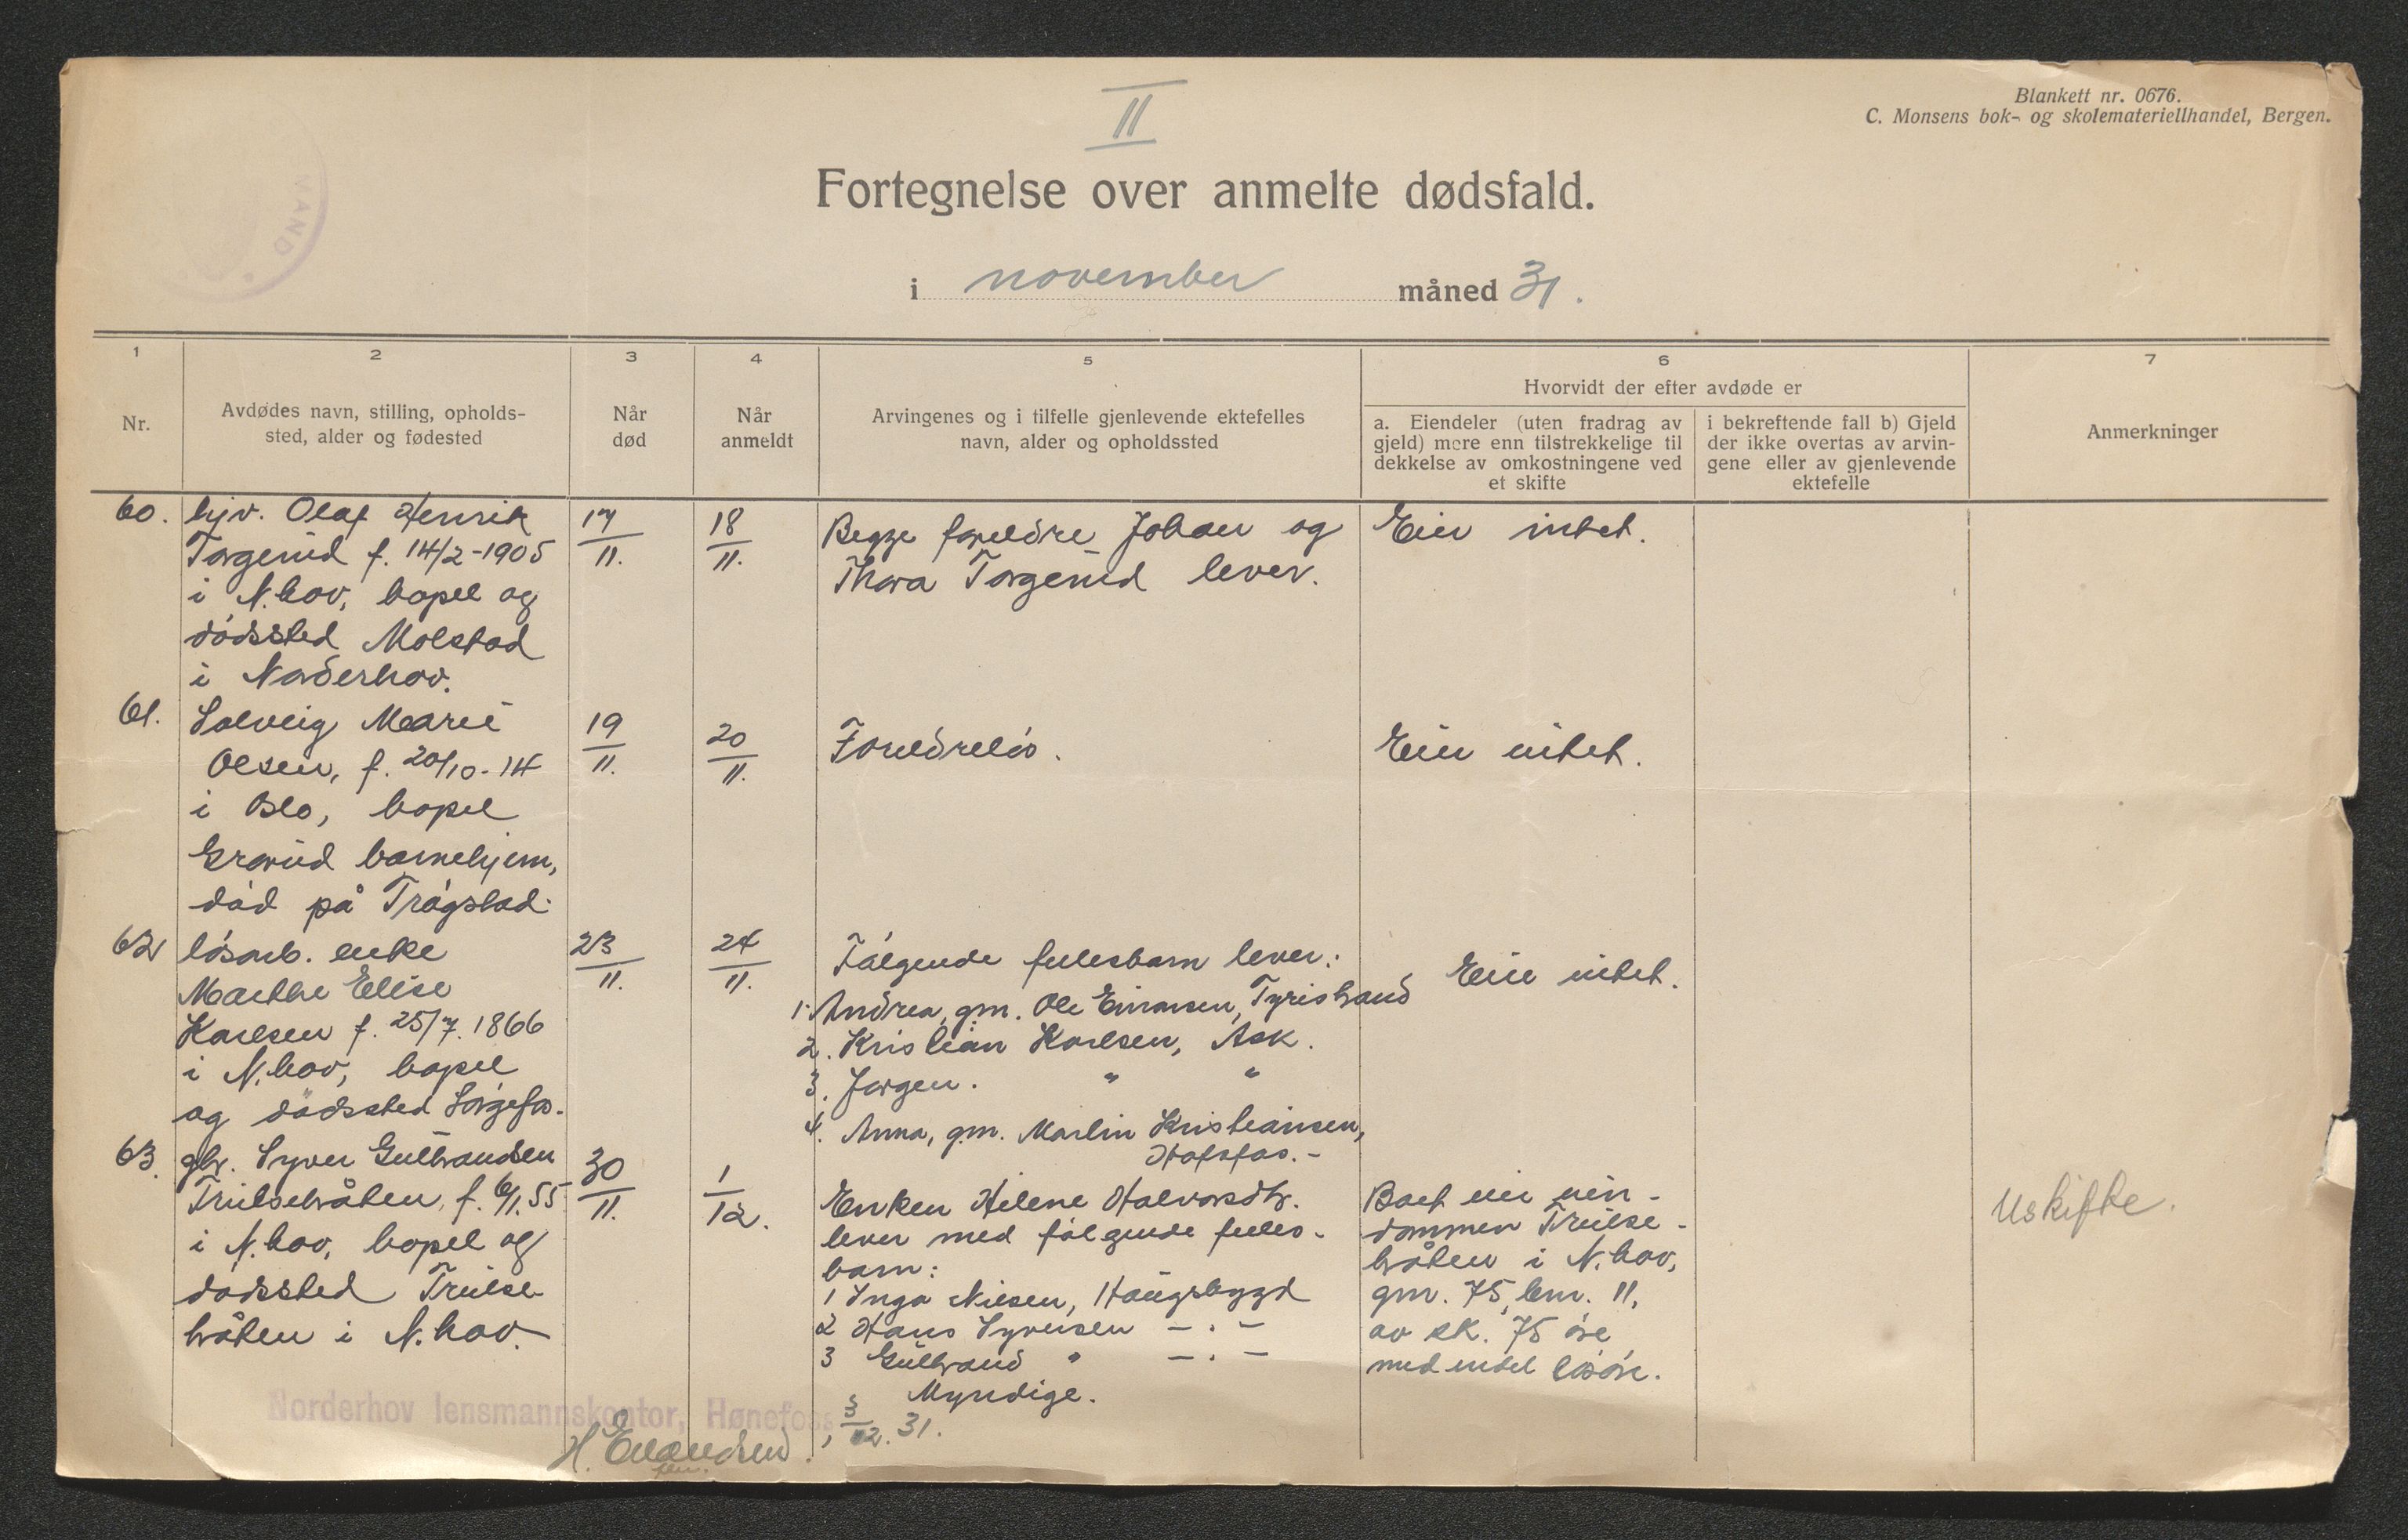 II
Blankett nr. 0676.
C. Monsens bok- og skolemateriellhandel, Bergen.
VAND
Fortegnelse over anmelte dødsfald.
i november måned 31.
1
2
3
4
5
6
7
Nr.
Avdødes navn, stilling, opholds-
sted, alder og fødested
Når
død
Når
anmeldt
Arvingenes og i tilfelle gjenlevende ektefelles
navn, alder og opholdssted
Hvorvidt der efter avdøde er
a. Eiendeler (uten fradrag av
gjeld) mere enn tilstrekkelige til
dekkelse av omkostningene ved
et skifte
i bekreftende fall b) Gjeld
der ikke overtas av arvin-
gene eller av gjenlevende
ektefelle
Anmerkninger
60. hjv. Olaf Henrik
Torgerud f. 14/2-1905
i N.hov, bopel og
dødssted Molstad
i Norderhov.
17/11.
18/11.
Begge foreldre Johan og
Thora Torgerud lever.
Eier intet.
61. Solveig Marie
Olsen, f. 20/10-14
i Oslo, bopel
Grorud barnehjem,
død på Trøgstad.
19/11.
20/11.
Foreldreløs.
Eier intet.
62 løsarb. enke
Marthe Elise
Karlsen f. 25/7. 1866
i N.hov, bopel
og dødssted
23/11.
24/11.
Følgende fellesbarn lever:
1. Andrea, gm. Ole Einarsen, Tyristrand
2. Kristian Karlsen, Ask.
3. Jørgen. " "
4. Anna, gm. Martin Kristiansen,
Hofsfos.-
Eier intet.
63. gbr. Syver Gulbrandsen
Trulsebråten, f. 6/1. 55
i N.hov, bopel og
dødssted Trulse-
bråten i N.hov.
30/11.
1/12.
Enken Helene Halvorsdtr.
lever med følgende felles-
barn:
1 Inga Nilsen, Haugsbygd
2 Hans Syversen - . -
3 Gulbrand " - . -
Myndige.
Boet eier eien-
dommen Trulse-
bråten i N.hov,
gnr. 75, bnr. 11,
av sk. 75 øre
med endel løsøre.
Uskifte.
Norderhov lensmannskontor, Hønefoss, 3/12. 31.